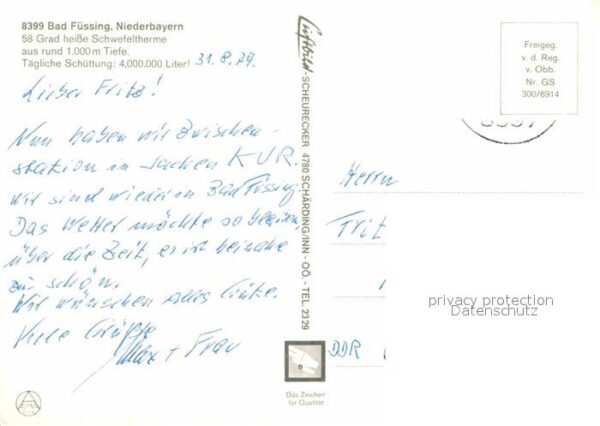 8399 Bad Füssing, Niederbayern
58 Grad heiße Schwefeltherme
aus rund 1.000 m Tiefe.
Tägliche Schüttung: 4,000.000 Liter!
31.8.79
Lieber Fritz!
Nun haben wir Zwischen-
station in Sachen KUR.
Wir sind wieder in Bad Füssing
Das Wetter möchte so
über die Zeit, es ist beinahe
zu schön.
Wir wünschen alles Gute.
Viele Grüße
Max + Frau
Luftbild-SCHEURECKER 4780 SCHÄRDING/INN - OÖ. - TEL 2329
Freigeg.
v. d. Reg.
v. Obb.
Nr. GS
300/6914
8397
Herrn
Fritz
DDR
privacy protection
Datenschutz
Das Zeichen
für Qualität